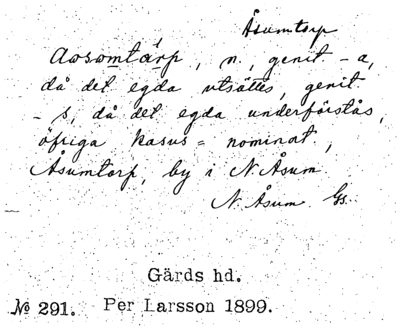 Åsumtorp
aosomtárp, n., genit -a,
då det egda utsättes, genit
-s, då det egda underförstås,
öfriga kasus = nominat.,
Åsumtorp, by i N. Åsum.
N. Åsum Gs.
Gärds hd.
№ 291. Per Larsson 1899.